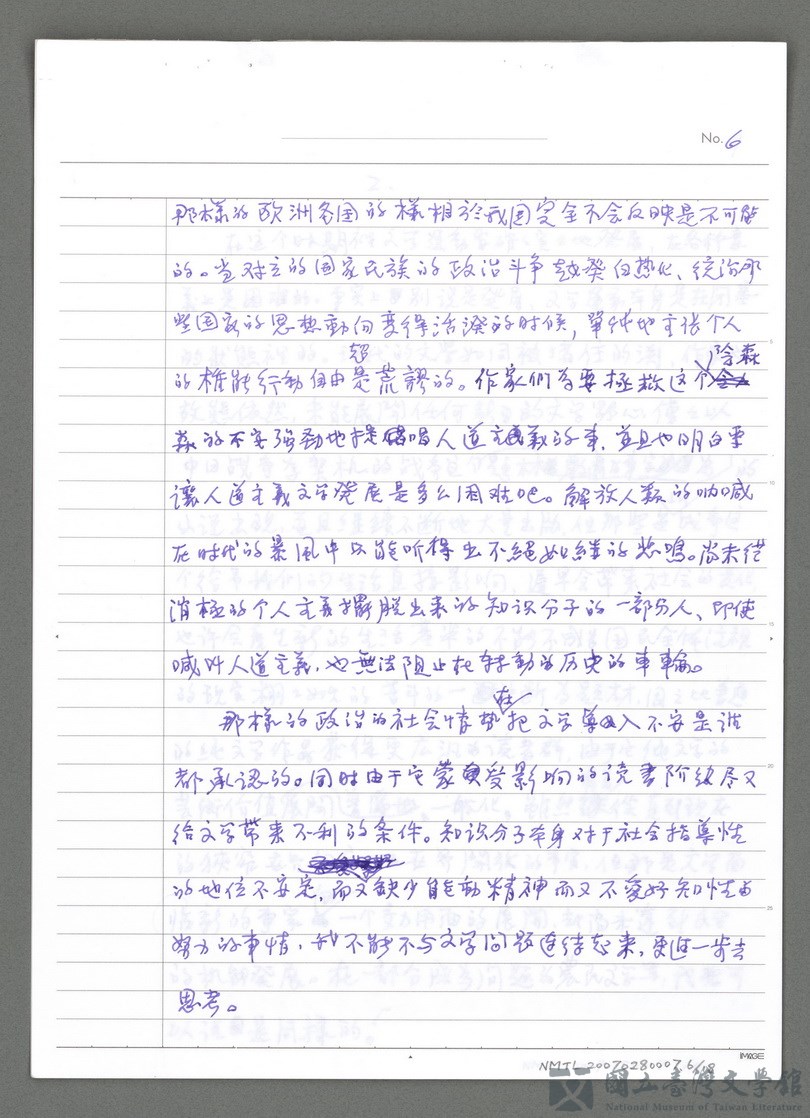 No. 6
那样的欧洲各国的樣相於我国完全不会反映是不可能
的。当对立的国家民族的政治斗争越發白热化、統治那
些国家的思想動向变得活潑的时候，單純地主张个人
超
的机能行動自由是荒謬的。作家們為要拯救这个
陰森
森的不安強勁地提唱人道主義的事，並且也明白要
讓人道主義文学発展是多么困难吧。解放人类的吶喊
在时代的暴風中只能听得出不絕如縷的悲鳴。尚未從
消極的个人主義擺脱出来的知识分子的一部分人、即使
喊叫人道主義，也無法阻止在转動的历史的車輪。
在
那樣的政治的社会情势把文学導入不安是谁
都承認的。同时由于它蒙受影响的读書阶级尽又
给文学带来不利的条件。知识分子本身对于社会指導性
的地位不安定，而又缺少能動精神而又不爱好知性由
努力的事情，我不能不与文学问题连结起来，更进一步去
思考。
IMAGE
NMTL20070280007 6/18
國立臺灣文學館
National Museum of Taiwan Literature